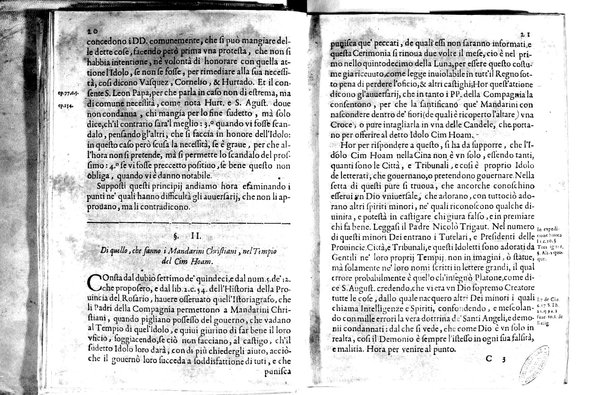 20
concedono i DD. comunemente, che si può mangiare del-
le dette cose, facendo però prima vna protesta, che non si
habbia intentione, nè volontà di honorare con quella at-
tione l'Idolo, se non se fosse, per rimediare alla sua necessi-
tà, così dicono Vasquez, Cornelio, & Hurtado. Et il con-
sente S. Leon Papa, che parla in caso non di estrema, ma
di comune necessità, come nota Hurt. e S. August. doue
non condanna, chi mangia per lo fine sudetto, mà solo
dice, ch'il contrario sarà'l meglio: 3.° quando vi fosse scan-
dalo, pensando gl'altri, che si faccia in honore dell'Idolo:
in questo caso però scusa la necessità, se è graue, per che al-
l'hora non si pretende, mà si permette lo scandalo del pros-
simo: 4.° se vi fosse precetto positiuo, se bene questo non
obliga, quando vi è danno notabile.
Supposti questi principij andiamo hora esaminando i
punti ne' quali hanno difficultà gli auuersarij, che non li ap-
prouano, ma li contradicono.
§. II.
Di quello, che fanno i Mandarini Christiani, nel Tempio
del Cim Hoam.
Consta dal dubio settimo de' quindeci, e dal num. 5. de' 12.
che proposero, e dal lib. 2. c. 34. dell'Historia della Pro-
uincia del Rosario, hauere osseruato quell'Istoriografo, che
li Padri della Compagnia permettono a Mandarini Chri-
stiani, quando pigliano possesso del gouerno, che vadano
al Tempio di quell'Idolo, e quiui giurino di far bene il loro
vfficio, soggiacendo, se ciò non facciano, al castigo, ch'il
sudetto Idolo loro darà, con di più chiedergli aiuto, acciò-
che il gouernò loro succeda a soddisfattione di tutti, e che
punisca
21
punisca que' peccati, de quali essi non saranno informati, e
questa Cerimonia si rinoua due volte il mese, cio è nel pri-
mo nello quintodecimo della Luna, per essere questo costu-
me già riceuuto, come legge inuiolabile in tutt'il Regno sot-
to pena di perdere l'oficio, & altri castighi. Hor quest'attione
dicono gl'auuersarij, che in tanto i PP. della Compagnia la
consentono, per che la santificano que' Mandarini con
nascondere dentro de' fiori (de quali è ricoperto l'altare) vna
Croce, o pure intagliarla in vna delle Candele, che porta-
no per offerire al detto Idolo Cim Hoam.
Hor per rispondere a questo, si hà da supporre, che l'I-
dolo Cim Hoam nella Cina non è vn solo, essendo tanti,
quanti sono le Città, e Tribunali, e così è proprio Idolo
de letterati, che gouernano, o pretendono gouernare Nella
setta di questi pure si truoua, che ancorche conoschino
esserui vn Dio vniuersale, che adorano, con tuttociò ado-
rano altri spiriti minori, ne' quali riconoscono qualche di-
uinità, e potestà in castigare chi giura falso, e in premiare
chi fà bene. Leggasi il Padre Nicolò Trigaut. Nel numero
di questi minori Dei entrano i Tutelari, e Presidenti delle
Prouincie Città, e Tribunali, e questi Idoletti sono adorati da
Gentili ne' loro proprij Tempij non in imagini, ò statue,
mà solamente ne' loro nomi scritti in lettere grandi, il qual
errore probabilmente è quello ch'insegnò Platone, come di-
ce S. August. credendo, che vi era vn Dio supremo Creatore
tutte le cose, dallo quale nacquero altri Dei minori i quali
chiama Intelligenze e Spiriti, confondendo, e mescolan-
do con mille errori la vera dottrina de Santi Angeli, e demo-
nii condannati: dal che si vede, che come Dio è vn solo in
realtà, così il Demonio è sempre l'istesso in ogni sua falsità,
e malitia. Hora per venire al punto.
C 3